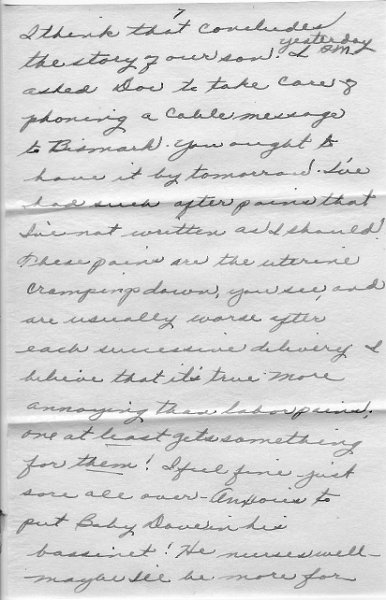 7
I think that concludes
the story of our son. I yesterday PM
asked Dow to take care of
phoning a cable message
to Bismark. You ought to
have it by tomorrow. I've
had such after pains that
I've not written as I should.
These pains are the uterine
cramping down, you see, and
are usually worse after
each successive delivery. I
believe that it's true. More
annoying than labor pains;
one at least gets something
for them! I feel fine - just
sore all over - Anxious to
put Baby Dave in his
bassinet! He nurses well -
maybe he'll be more for